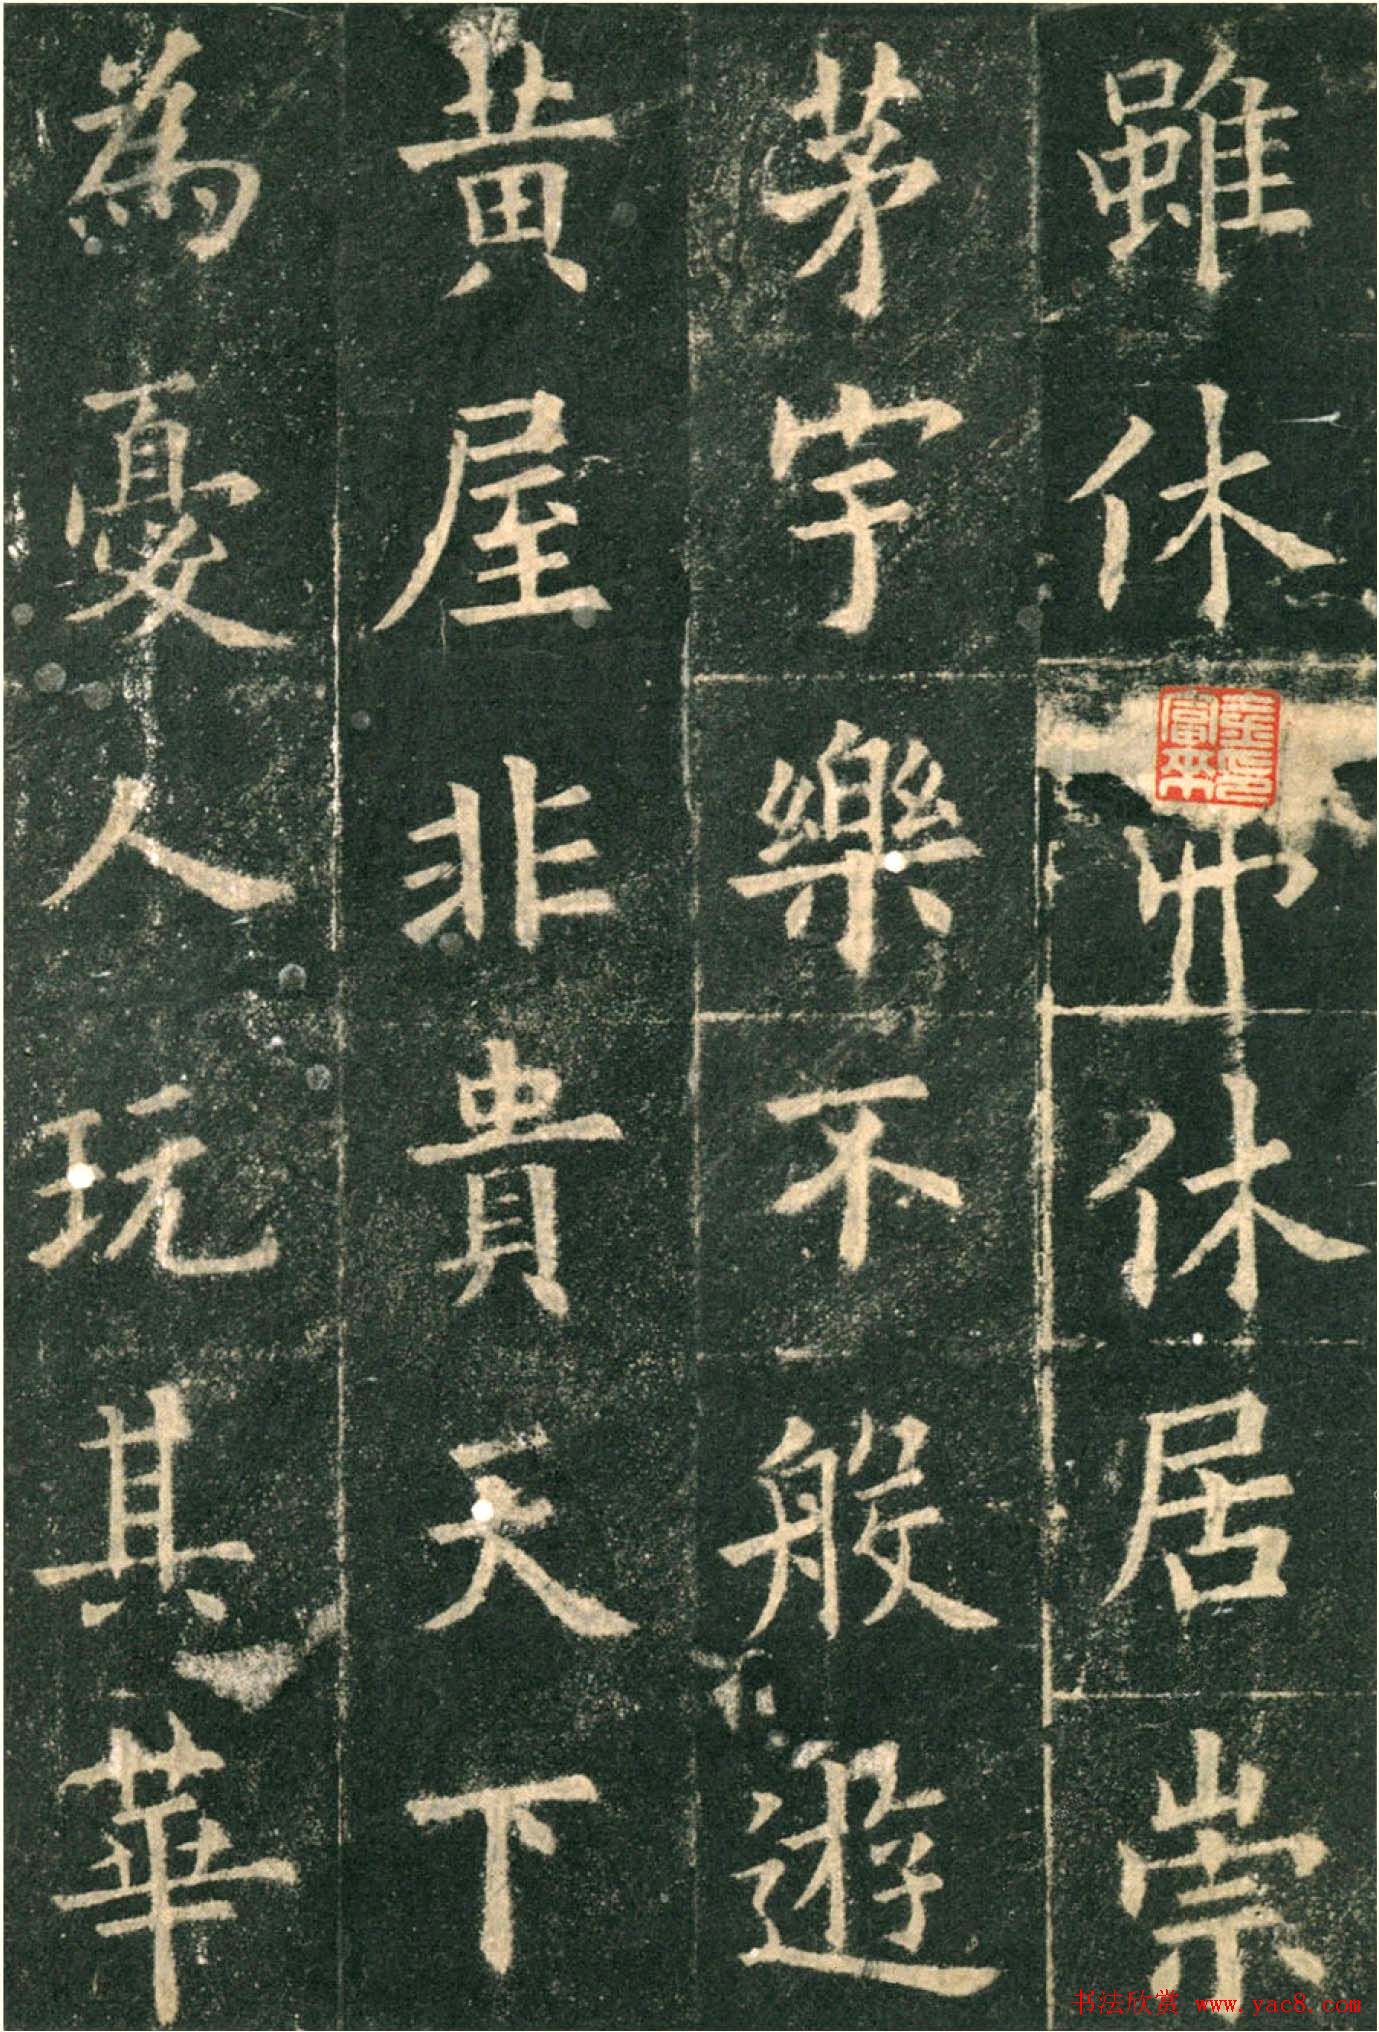 雖休弗休居崇
茅宇樂不般遊
黄屋非貴天下
為憂人玩其華
书法欣赏 www.yac8.com